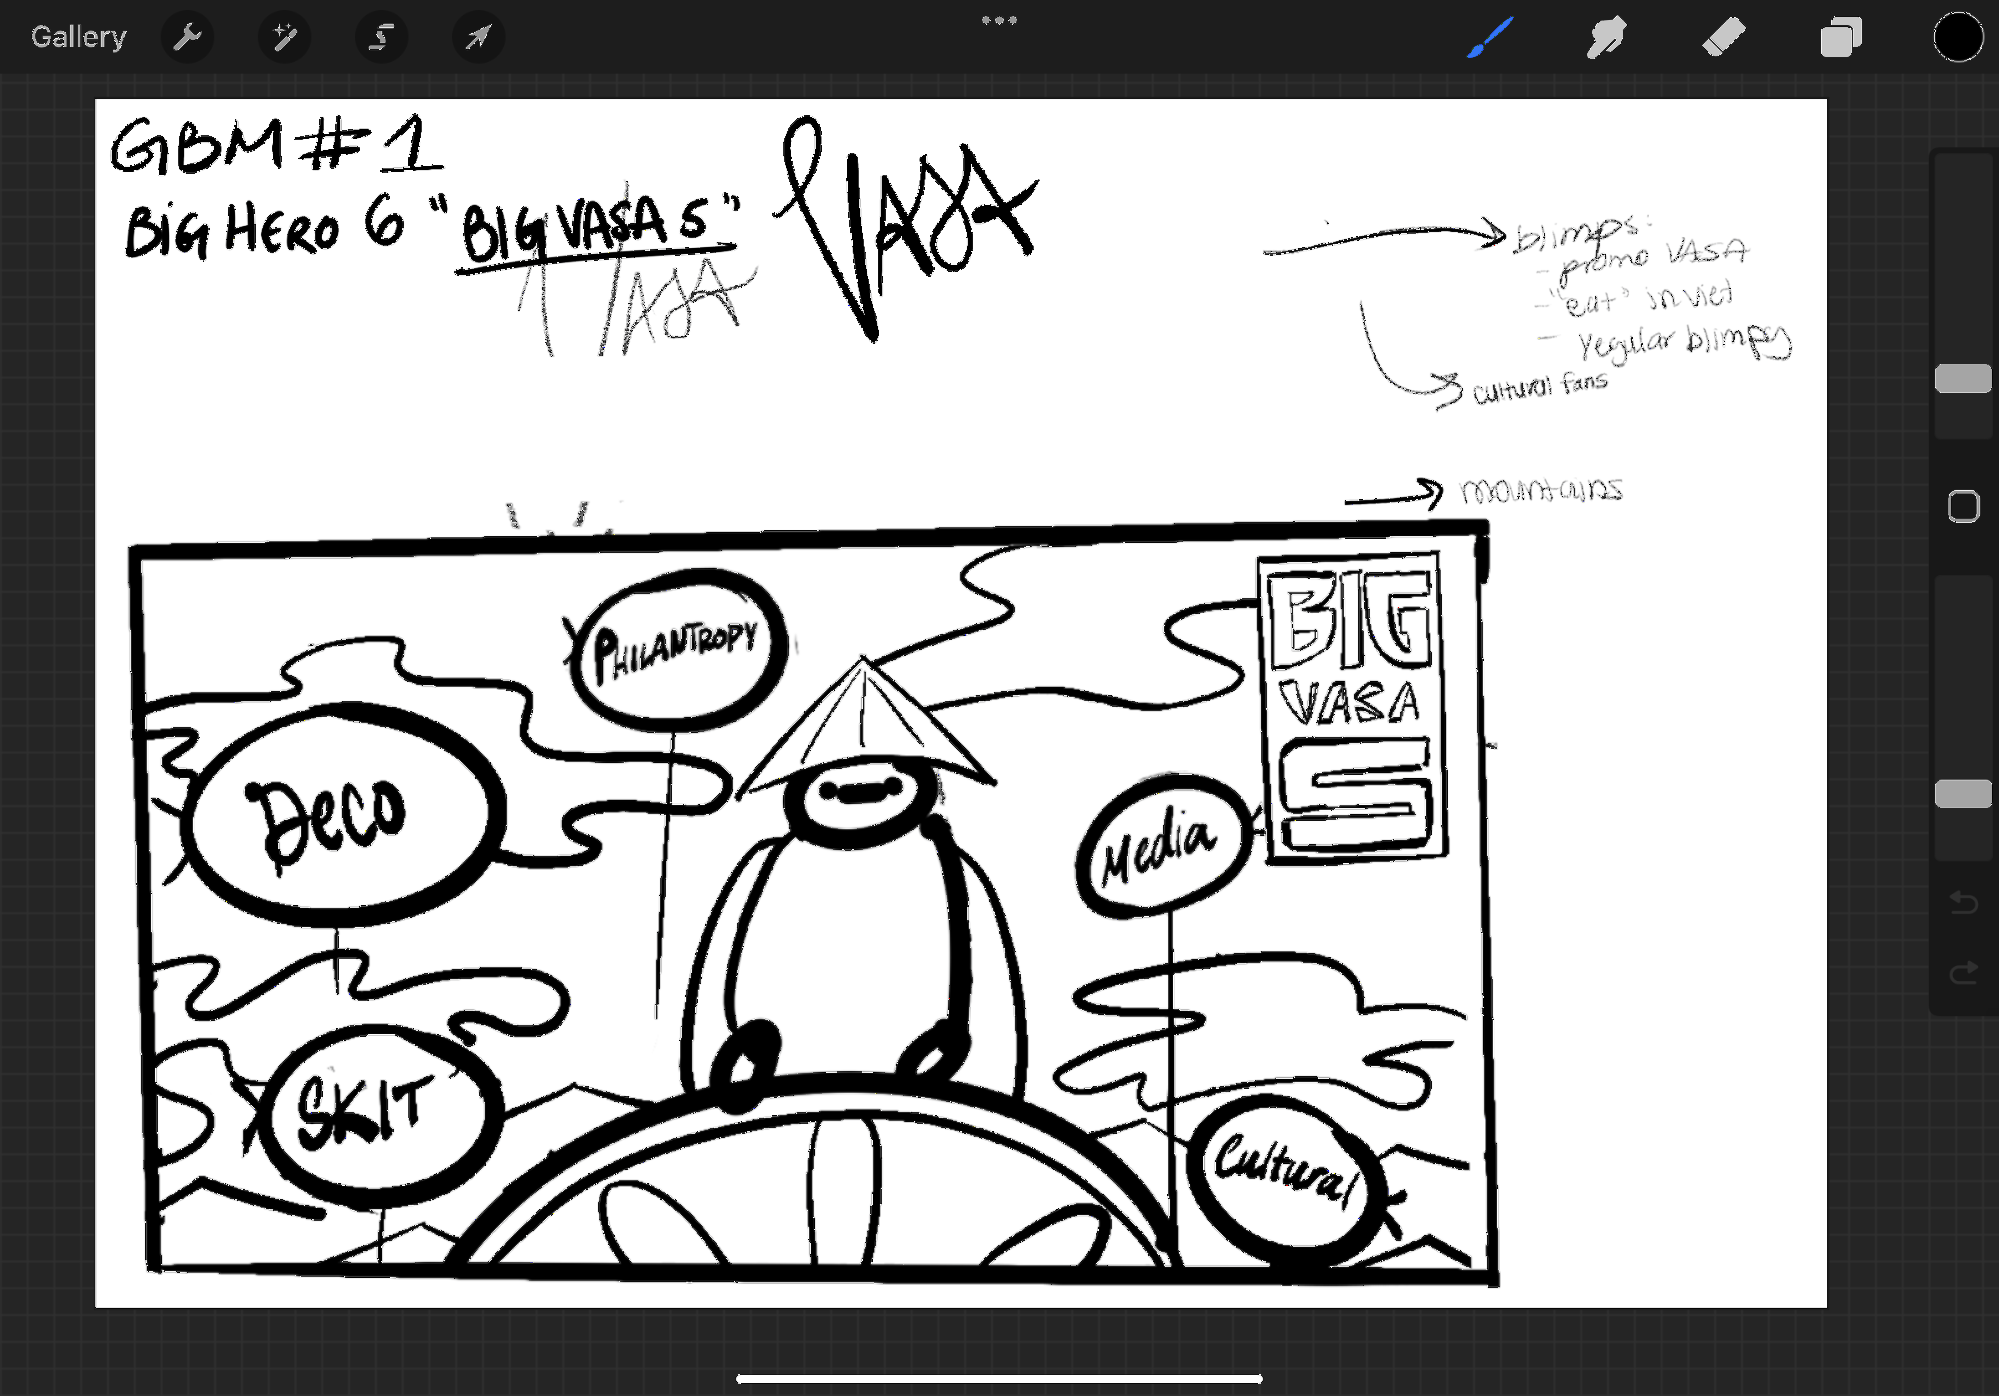 Gallery
GBM #1
BIG HERO 6 "BIG VASA 5"
VASA
VASA
blimps:
- promo VASA
- "eat" in viet
- regular blimpy
cultural fans
mountains
PHILANTROPY
BIG
VASA
5
Deco
Media
SKIT
Cultural